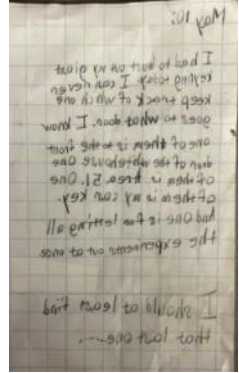 May 10:
I had to bust out my giant
keyring today I can never
keep track of which one
goes to what door. I know
one of them is to the front
door of the warehouse One
of them is Area 51. One
of them is my car key.
And One is for letting all
the experiments out at once
I should at least find
that last one....